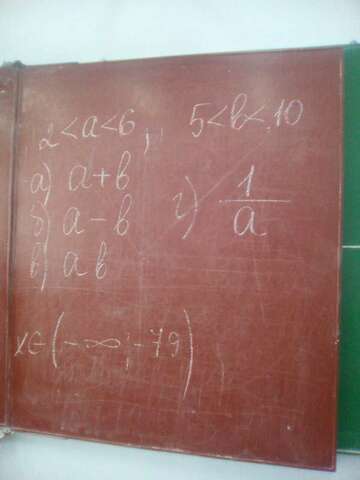 2 < a < 6, 5 < b < 10
а) a + b
б) a − b
в) a b
г) 1/a
x ∈ (−∞; −79)